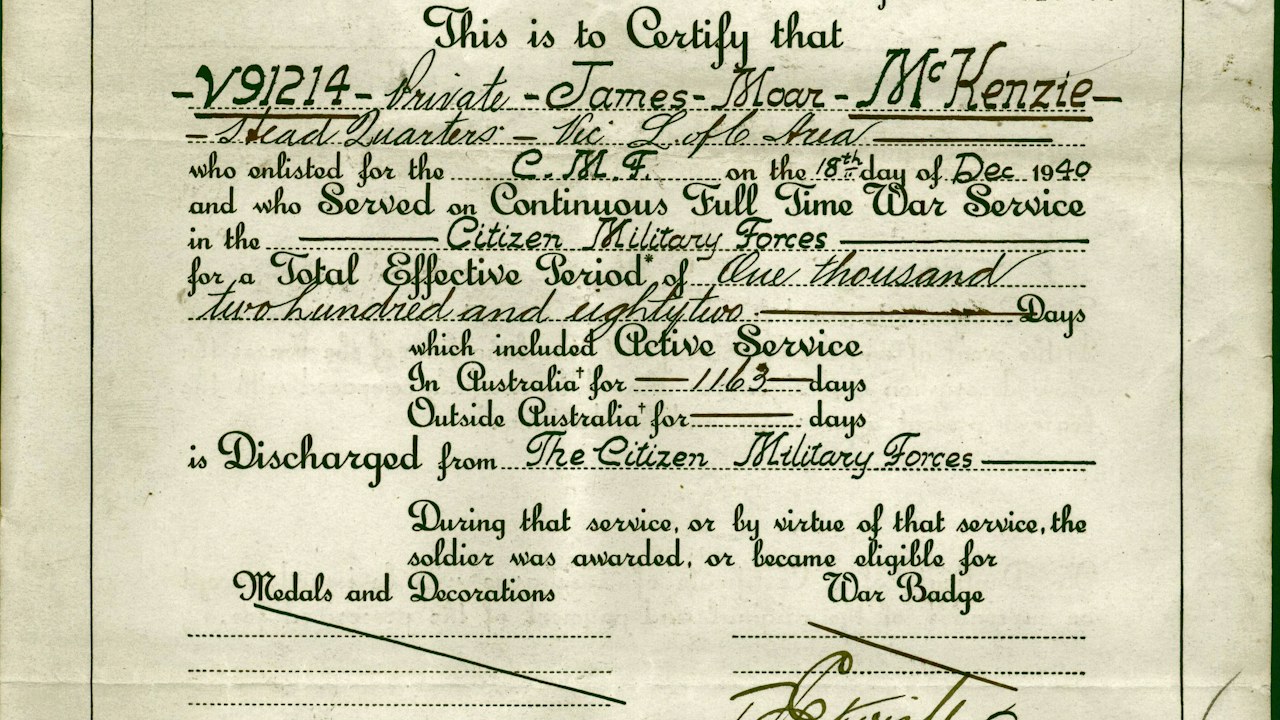 This is to Certify that
- V91214 - Private - James - Moar - McKenzie -
- Head Quarters - Vic L of C Area
who enlisted for the C. M. F. on the 18th day of Dec 1940
and who Served on Continuous Full Time War Service
in the Citizen Military Forces
for a Total Effective Period* of One thousand
two hundred and eighty two Days
which included Active Service
In Australia† for 1163 days
Outside Australia† for days
is Discharged from The Citizen Military Forces
During that service, or by virtue of that service, the
soldier was awarded, or became eligible for
Medals and Decorations War Badge